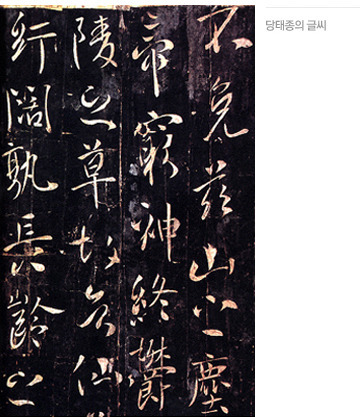 不免茲山之塵
帝窮神終鬱
陵之草故知仙
紆闊孰長齡之
당태종의 글씨